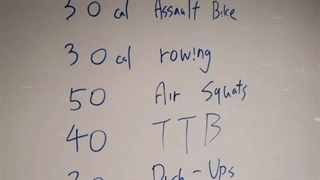 30 cal Assault Bike
30 cal rowing
50 Air Squats
40 TTB
Push-Ups